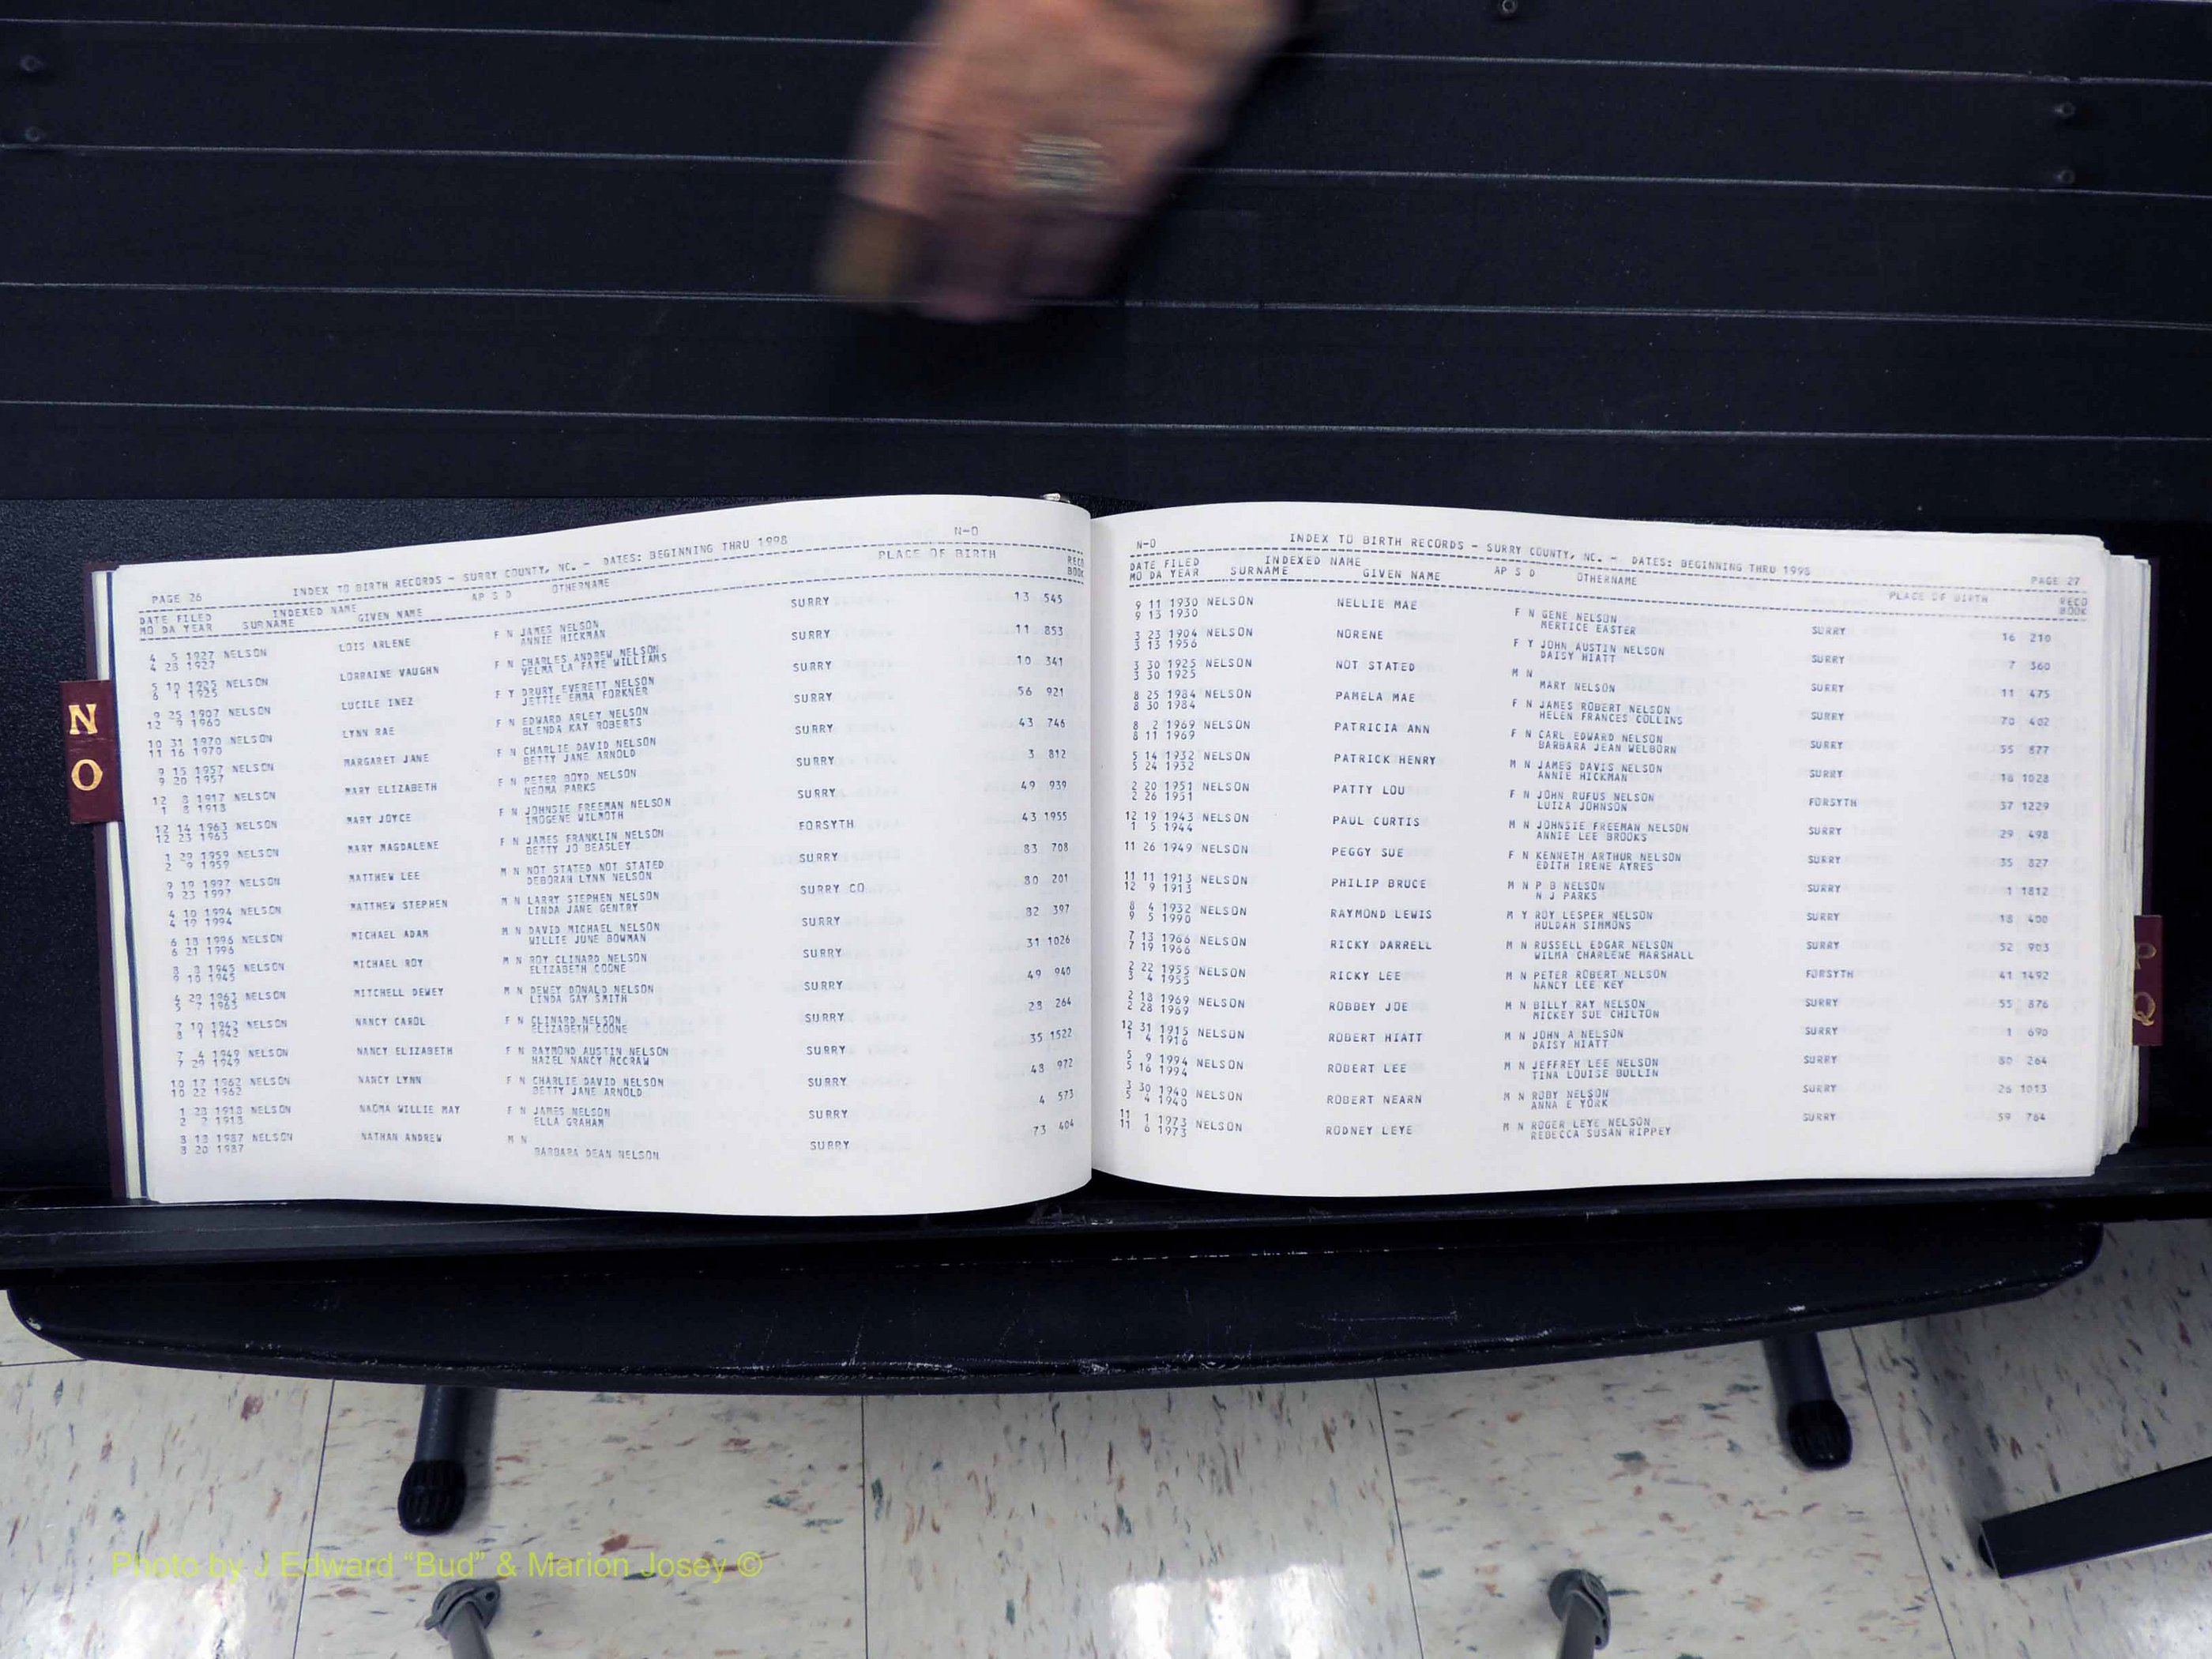 N
O
PAGE 26 INDEX TO BIRTH RECORDS - SURRY COUNTY, NC. - DATES: BEGINNING THRU 1998 N-O
DATE FILED INDEXED NAME AP S D OTHERNAME PLACE OF BIRTH RECO
MO DA YEAR SURNAME GIVEN NAME BOOK
4 5 1927 NELSON LOIS ARLENE F N JAMES NELSON SURRY 13 545
4 28 1927 ANNIE HICKMAN
5 10 1925 NELSON LORRAINE VAUGHN F N CHARLES ANDREW NELSON SURRY 11 853
6 1 1925 VELMA LA FAYE WILLIAMS
9 25 1907 NELSON LUCILE INEZ F Y DRURY EVERETT NELSON SURRY 10 341
12 9 1960 JETTIE EMMA FORKNER
10 31 1970 NELSON LYNN RAE F N EDWARD ARLEY NELSON SURRY 56 921
11 16 1970 BLENDA KAY ROBERTS
9 15 1957 NELSON MARGARET JANE F N CHARLIE DAVID NELSON SURRY 43 746
9 20 1957 BETTY JANE ARNOLD
12 8 1917 NELSON MARY ELIZABETH F N PETER BOYD NELSON SURRY 3 812
1 8 1918 NEOMA PARKS
12 14 1963 NELSON MARY JOYCE F N JOHNSIE FREEMAN NELSON SURRY 49 939
12 23 1963 IMOGENE WILMOTH
1 29 1959 NELSON MARY MAGDALENE F N JAMES FRANKLIN NELSON FORSYTH 43 1955
2 9 1959 BETTY JO BEASLEY
9 19 1997 NELSON MATTHEW LEE M N NOT STATED NOT STATED SURRY 83 708
9 23 1997 DEBORAH LYNN NELSON
4 10 1994 NELSON MATTHEW STEPHEN M N LARRY STEPHEN NELSON SURRY CO 80 201
4 19 1994 LINDA JANE GENTRY
6 18 1996 NELSON MICHAEL ADAM M N DAVID MICHAEL NELSON SURRY 82 397
6 21 1996 WILLIE JUNE BOWMAN
8 8 1945 NELSON MICHAEL ROY M N ROY CLINARD NELSON SURRY 31 1026
9 10 1945 ELIZABETH COONE
4 29 1963 NELSON MITCHELL DEWEY M N DEWEY DONALD NELSON SURRY 49 940
5 7 1963 LINDA GAY SMITH
7 10 1942 NELSON NANCY CAROL F N CLINARD NELSON SURRY 28 264
8 1 1942 ELIZABETH COONE
7 4 1949 NELSON NANCY ELIZABETH F N RAYMOND AUSTIN NELSON SURRY 35 1522
7 29 1949 HAZEL NANCY MCCRAW
10 17 1962 NELSON NANCY LYNN F N CHARLIE DAVID NELSON SURRY 48 972
10 22 1962 BETTY JANE ARNOLD
1 23 1918 NELSON NAOMA WILLIE MAY F N JAMES NELSON SURRY 4 573
2 2 1918 ELLA GRAHAM
8 18 1987 NELSON NATHAN ANDREW M N SURRY 73 404
8 20 1987 BARBARA DEAN NELSON
N-O INDEX TO BIRTH RECORDS - SURRY COUNTY, NC. - DATES: BEGINNING THRU 1998 PAGE 27
DATE FILED INDEXED NAME AP S D OTHERNAME PLACE OF BIRTH RECO
MO DA YEAR SURNAME GIVEN NAME BOOK
9 11 1930 NELSON NELLIE MAE F N GENE NELSON SURRY 16 210
9 13 1930 MERTICE EASTER
3 23 1904 NELSON NORENE F Y JOHN AUSTIN NELSON SURRY 7 360
3 13 1956 DAISY HIATT
3 30 1925 NELSON NOT STATED M N SURRY 11 475
3 30 1925 MARY NELSON
8 25 1984 NELSON PAMELA MAE F N JAMES ROBERT NELSON SURRY 70 402
8 30 1984 HELEN FRANCES COLLINS
8 2 1969 NELSON PATRICIA ANN F N CARL EDWARD NELSON SURRY 55 877
8 11 1969 BARBARA JEAN WELBORN
5 14 1932 NELSON PATRICK HENRY M N JAMES DAVIS NELSON SURRY 18 1028
5 24 1932 ANNIE HICKMAN
2 20 1951 NELSON PATTY LOU F N JOHN RUFUS NELSON FORSYTH 37 1229
2 26 1951 LUIZA JOHNSON
12 19 1943 NELSON PAUL CURTIS M N JOHNSIE FREEMAN NELSON SURRY 29 498
1 5 1944 ANNIE LEE BROOKS
11 26 1949 NELSON PEGGY SUE F N KENNETH ARTHUR NELSON SURRY 35 827
EDITH IRENE AYRES
11 11 1913 NELSON PHILIP BRUCE M N P B NELSON SURRY 1 1812
12 9 1913 N J PARKS
8 4 1932 NELSON RAYMOND LEWIS M Y ROY LESPER NELSON SURRY 18 400
9 5 1990 HULDAH SIMMONS
7 13 1966 NELSON RICKY DARRELL M N RUSSELL EDGAR NELSON SURRY 52 903
7 19 1966 WILMA CHARLENE MARSHALL
2 22 1955 NELSON RICKY LEE M N PETER ROBERT NELSON FORSYTH 41 1492
3 4 1955 NANCY LEE KEY
2 18 1969 NELSON ROBBEY JOE M N BILLY RAY NELSON SURRY 55 876
2 28 1969 MICKEY SUE CHILTON
12 31 1915 NELSON ROBERT HIATT M N JOHN A NELSON SURRY 1 690
1 4 1916 DAISY HIATT
5 9 1994 NELSON ROBERT LEE M N JEFFREY LEE NELSON SURRY 80 264
5 16 1994 TINA LOUISE BULLIN
3 30 1940 NELSON ROBERT NEARN M N ROBY NELSON SURRY 26 1013
5 4 1940 ANNA E YORK
11 1 1973 NELSON RODNEY LEYE M N ROGER LEYE NELSON SURRY 59 764
11 6 1973 REBECCA SUSAN RIPPEY
P
Q
Photo by J Edward “Bud” & Marion Josey ©